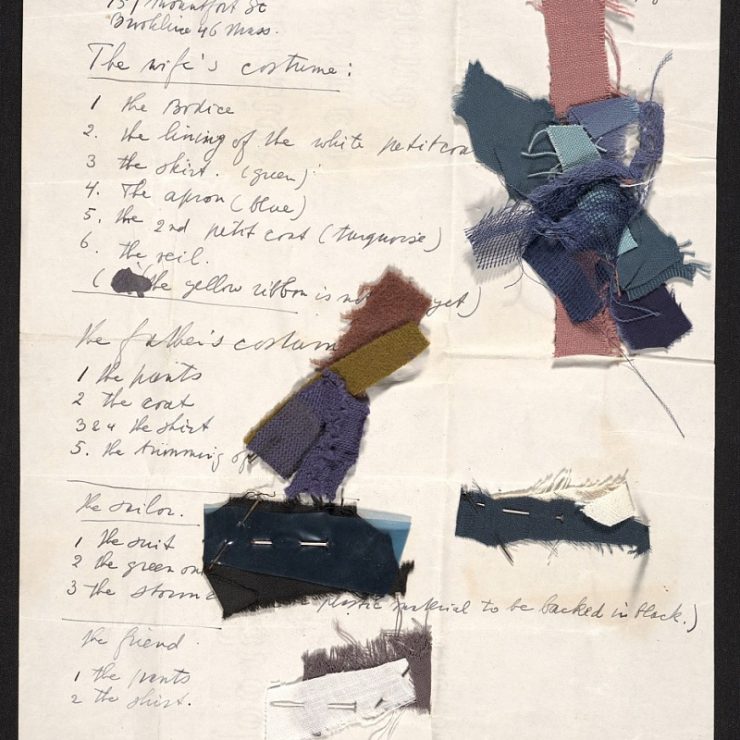 157 Mountfort St
Brookline 46 Mass.
The wife's costume:
1 the Bodice
2. the lining of the white petitcoa
3 the skirt. (green)
4. The apron (blue)
5. the 2nd petit coat (turquoise)
6. the veil.
( the yellow ribbon is not yet)
the father's costum
1 the pants
2 the coat
3 & 4 the shirt
5. the trimming of
the sailor.
1 the suit
2 the green on
3 the storm c plastic material to be backed in black.)
the friend
1 the pants
2 the shirt.